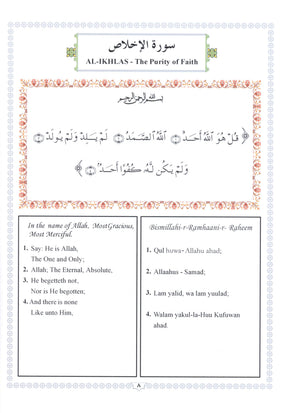 سورة الإخلاص
AL-IKHLAS - The Purity of Faith
بسم الله الرحمن الرحيم
﴿ قُلْ هُوَ اللَّهُ أَحَدٌ ۝١ اللَّهُ الصَّمَدُ ۝٢ لَمْ يَلِدْ وَلَمْ يُولَدْ ۝٣
وَلَمْ يَكُن لَّهُ كُفُوًا أَحَدٌ ۝٤ ﴾
In the name of Allah, MostGracious,
Most Merciful.
1. Say: He is Allah,
The One and Only;
2. Allah, The Eternal, Absolute,
3. He begetteth not,
Nor is He begotten;
4. And there is none
Like unto Him,
Bismillahi-r-Ramhaani-r- Raheem
1. Qul huwa- Allahu ahad;
2. Allaahus - Samad;
3. Lam yalid, wa lam yuulad;
4. Walam yakul-la-Huu Kufuwan
ahad.
٨